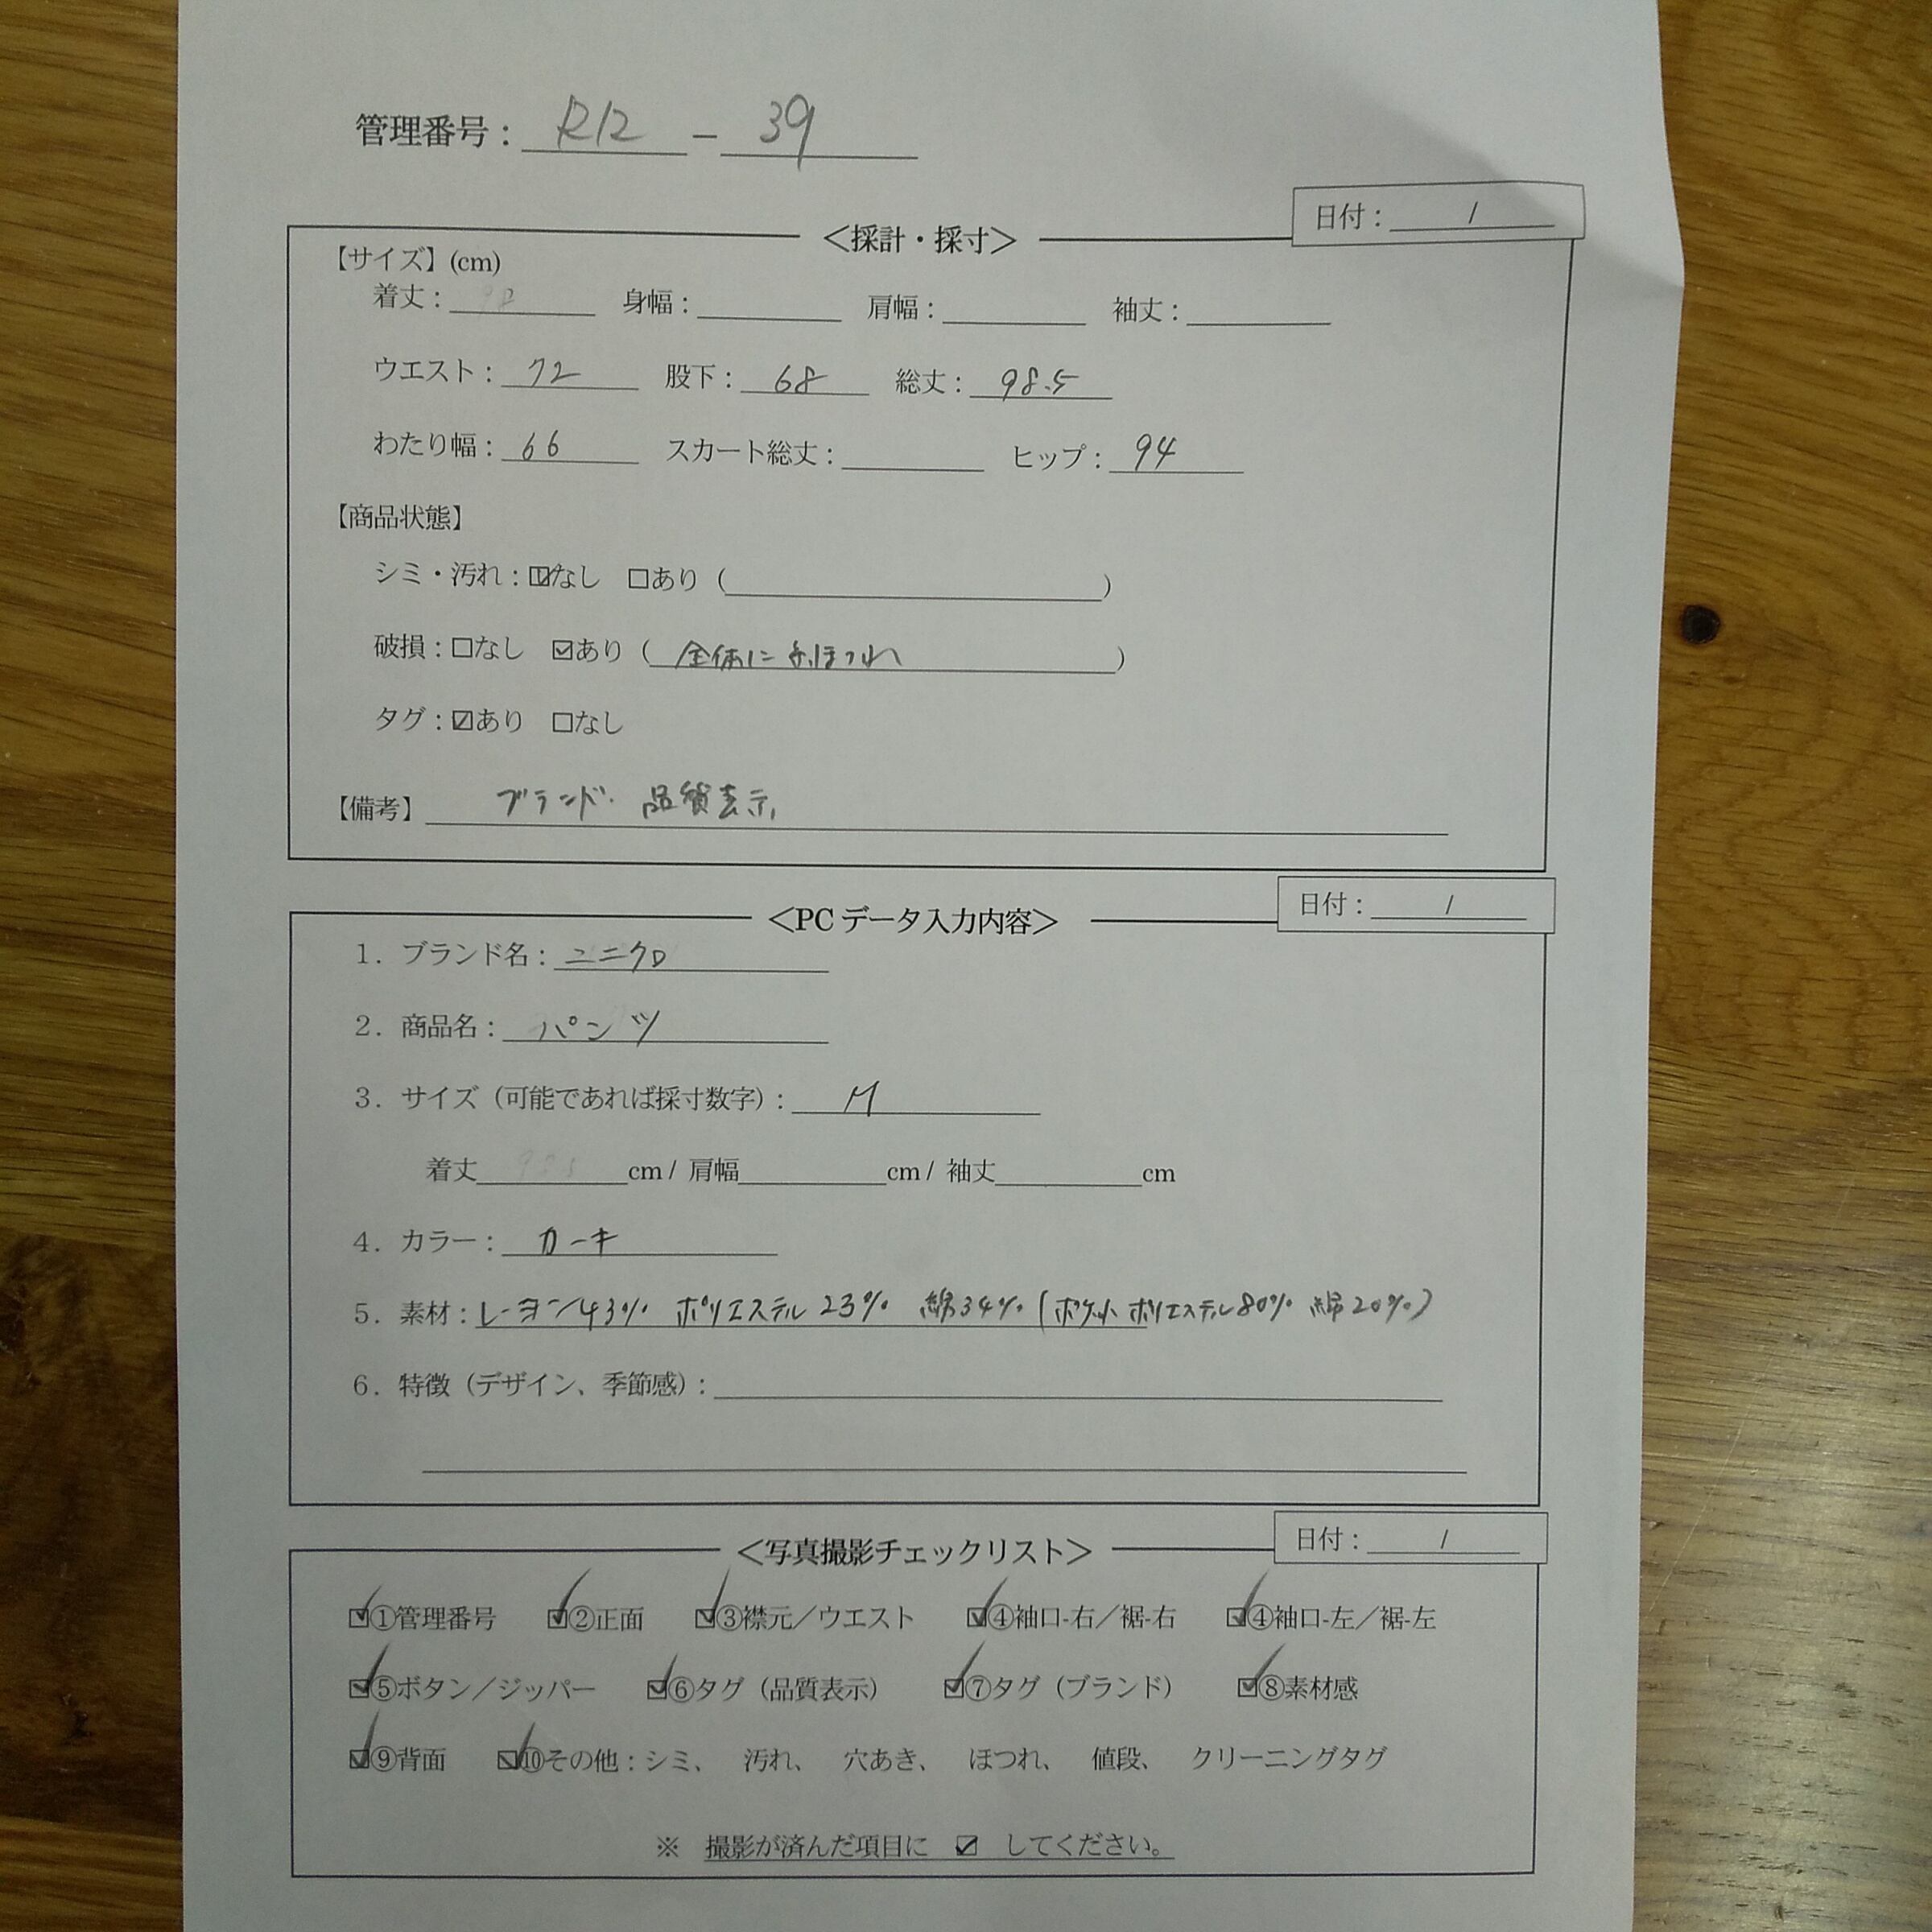 管理番号： R12 － 39
日付： /
＜採計・採寸＞
【サイズ】(cm)
着丈： 身幅： 肩幅： 袖丈：
ウエスト： 72 股下： 68 総丈： 98.5
わたり幅： 66 スカート総丈： ヒップ： 94
【商品状態】
シミ・汚れ：☑なし □あり（ ）
破損：□なし ☑あり（ 全体に ほつれ ）
タグ：☑あり □なし
【備考】 ブランド・品質表示
日付： /
＜PCデータ入力内容＞
1．ブランド名： ユニクロ
2．商品名： パンツ
3．サイズ（可能であれば採寸数字）： M
着丈 cm / 肩幅 cm / 袖丈 cm
4．カラー： カーキ
5．素材：レーヨン43% ポリエステル23% 綿34%（ポケット ポリエステル80% 綿20%）
6．特徴（デザイン、季節感）：
日付： /
＜写真撮影チェックリスト＞
☑①管理番号 ☑②正面 ☑③襟元／ウエスト ☑④袖口-右／裾-右 ☑④袖口-左／裾-左
☑⑤ボタン／ジッパー ☑⑥タグ（品質表示） ☑⑦タグ（ブランド） ☑⑧素材感
☑⑨背面 ☑⑩その他：シミ、 汚れ、 穴あき、 ほつれ、 値段、 クリーニングタグ
※ 撮影が済んだ項目に ☑ してください。